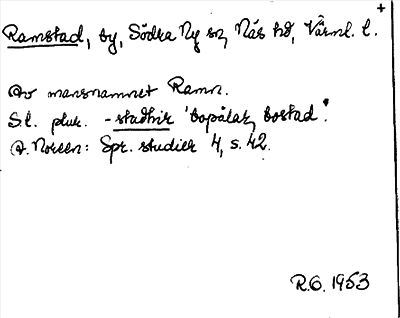 +
Ramstad, by, Södra Ny sn, Näs hd, Värml. l.
Av mansnamnet Ramn.
S.l. plur. -staðir 'boplats, bostad'.
A. Noreen: Spr. studier 4, s. 42.
R.O. 1953